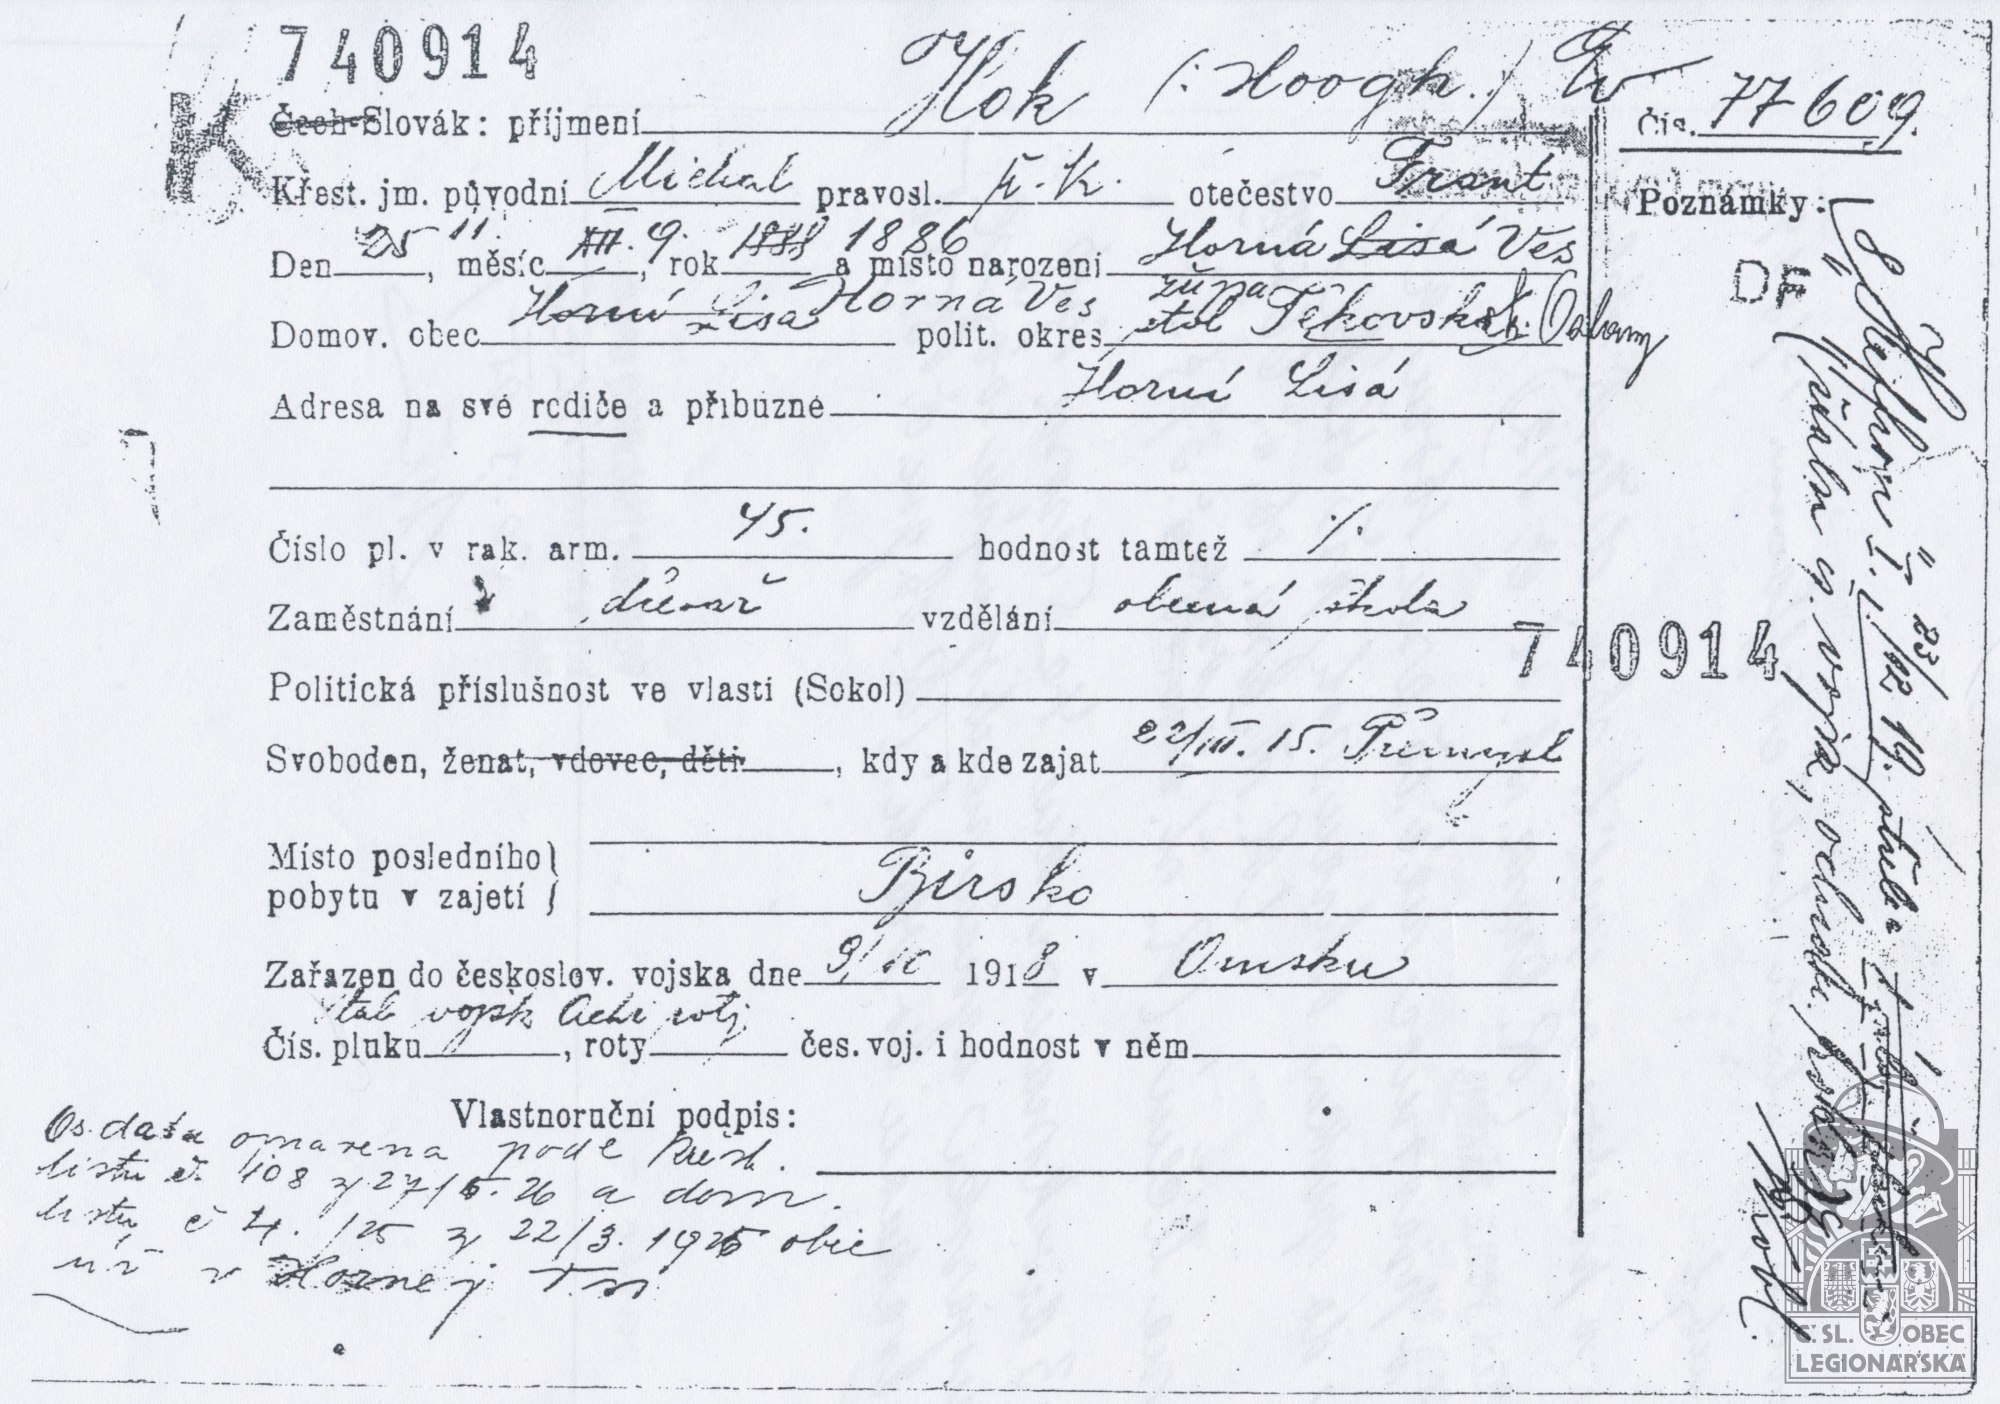 740914
K
Čech-Slovák: příjmení Hok (: Hoogh.)
Čís. 77609.
Křest. jm. původní Michal pravosl. ř. k. otečestvo Frant.
Poznámky:
Den 25 11., měsíc XII. 9., rok 1888 1886 a místo narození Horná Lisá Ves
DF
Domov. obec Horní Lisá Horná Ves polit. okres župa stol Těkovská
Adresa na své rodiče a příbuzné Horní Lisá
Číslo pl. v rak. arm. 45. hodnost tamtéž /.
Zaměstnání vzdělání obecná škola
740914
Politická příslušnost ve vlasti (Sokol)
Svoboden, ženat, vdovec, děti, kdy a kde zajat 22/III. 15. Přemysl
Místo posledního
pobytu v zajetí Birsko
Zařazen do českoslov. vojska dne 9/10 1918 v Omsku
Štáb vojsk
Čís. pluku, roty čes. voj. i hodnost v něm
Vlastnoruční podpis:
Os. data opravena podle křest.
listu č. 408 z 27/5. 26 a dom.
listu č 4. /25 z 22/3. 1925 obec
úř v Hornej Vsi
Č. SL. OBEC
LEGIONÁŘSKÁ